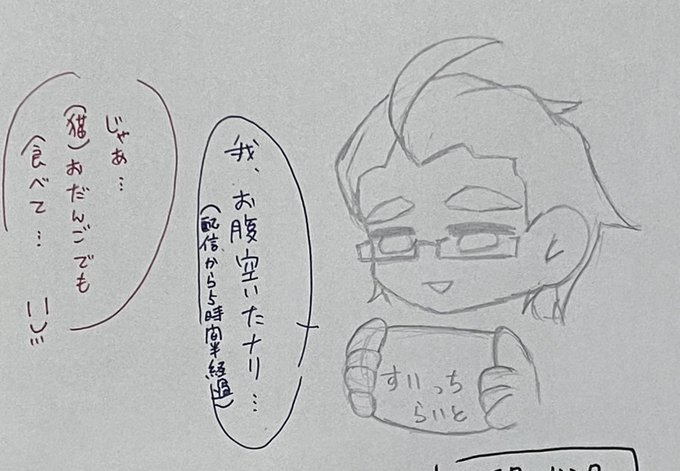 我、お腹空いたナリ…
(配信から5時間半経過)
じゃあ…
(猫)おだんごでも
食べて…
すいっち
らいと